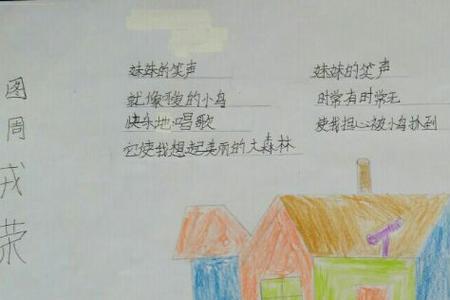 妹妹的笑声
就像可爱的小鸟
快乐地唱歌
它使我想起美丽的大森林
妹妹的笑声
时常有时常无
使我担心被小鸟扑到
图周戎荣